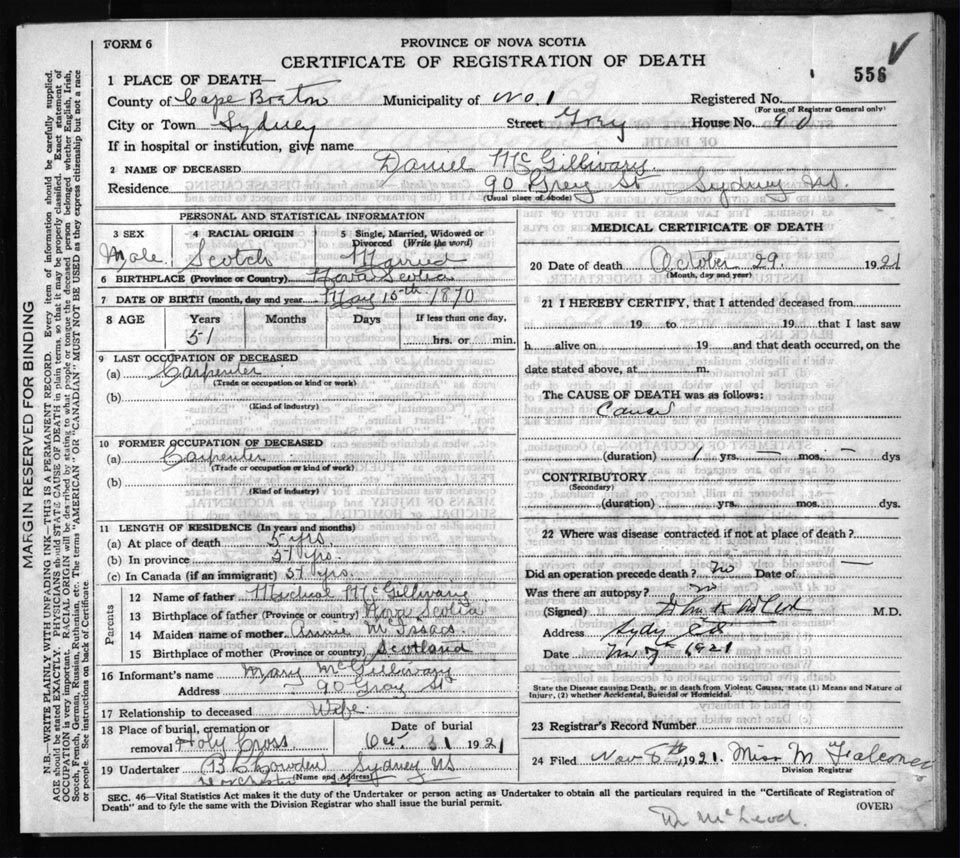 FORM 6
PROVINCE OF NOVA SCOTIA
CERTIFICATE OF REGISTRATION OF DEATH
556
1 PLACE OF DEATH—
County of Cape Breton Municipality of No. 1 Registered No.
(For use of Registrar General only)
City or Town Sydney Street Grey House No. 90
If in hospital or institution, give name
2 NAME OF DECEASED Daniel McGillivary
Residence 90 Grey St Sydney NS.
(Usual place of abode)
PERSONAL AND STATISTICAL INFORMATION
3 SEX
Male
4 RACIAL ORIGIN
Scotch
5 Single, Married, Widowed or
Divorced (Write the word)
Married
6 BIRTHPLACE (Province or Country) Nova Scotia
7 DATE OF BIRTH (month, day and year) May 15th 1870
8 AGE Years Months Days If less than one day,
51 hrs. or min.
9 LAST OCCUPATION OF DECEASED
(a) Carpenter
(Trade or occupation or kind or work)
(b)
(Kind of industry)
10 FORMER OCCUPATION OF DECEASED
(a) Carpenter
(Trade or occupation or kind of work)
(b)
(Kind of industry)
11 LENGTH OF RESIDENCE (In years and months)
(a) At place of death 5 yrs.
(b) In province 51 yrs.
(c) In Canada (if an immigrant) 51 yrs.
Parents
12 Name of father Micheal McGillivary
13 Birthplace of father (Province or country) Nova Scotia
14 Maiden name of mother Annie McIsaac
15 Birthplace of mother (Province or country) Scotland
16 Informant's name Mary McGillivary
Address — 90 Gray St
17 Relationship to deceased Wife
18 Place of burial, cremation or Date of burial
removal Holy Cross Oct 31 1921
19 Undertaker Sydney NS
(Name and Address)
MEDICAL CERTIFICATE OF DEATH
20 Date of death October 29. 1921
(Month, day and year)
21 I HEREBY CERTIFY, that I attended deceased from
19 to 19 that I last saw
h alive on 19 and that death occurred, on the
date stated above, at m.
The CAUSE OF DEATH was as follows:
Cancer
(duration) 1 yrs. — mos. — dys
CONTRIBUTORY
(Secondary)
(duration) yrs. mos. dys.
22 Where was disease contracted if not at place of death?
Did an operation precede death? No Date of —
Was there an autopsy? no
(Signed) M.D.
Address
Date 1921
State the Disease causing Death, or in death from Violent Causes, state (1) Means and Nature of
Injury, (2) whether Accidental, Suicidal or Homicidal.
23 Registrar's Record Number
24 Filed Nov 8th, 1921. Miss M Falconer
Division Registrar
SEC. 46—Vital Statistics Act makes it the duty of the Undertaker or person acting as Undertaker to obtain all the particulars required in the "Certificate of Registration of
Death" and to fyle the same with the Division Registrar who shall issue the burial permit.
(OVER)
McLeod.
MARGIN RESERVED FOR BINDING
N.B.—WRITE PLAINLY WITH UNFADING INK—THIS IS A PERMANENT RECORD. Every item of information should be carefully supplied.
AGE should be stated EXACTLY. PHYSICIANS should STATE CAUSE OF DEATH in plain terms, so that it may be properly classified. Exact statement of
OCCUPATION is very important. RACIAL ORIGIN will be described by stating to what people or tongue the deceased person belonged whether English, Irish,
Scotch, French, German, Russian, Ruthenian, etc. The terms "AMERICAN" OR "CANADIAN" MUST NOT BE USED as they express citizenship but not a race
or people. See instructions on back of Certificate.